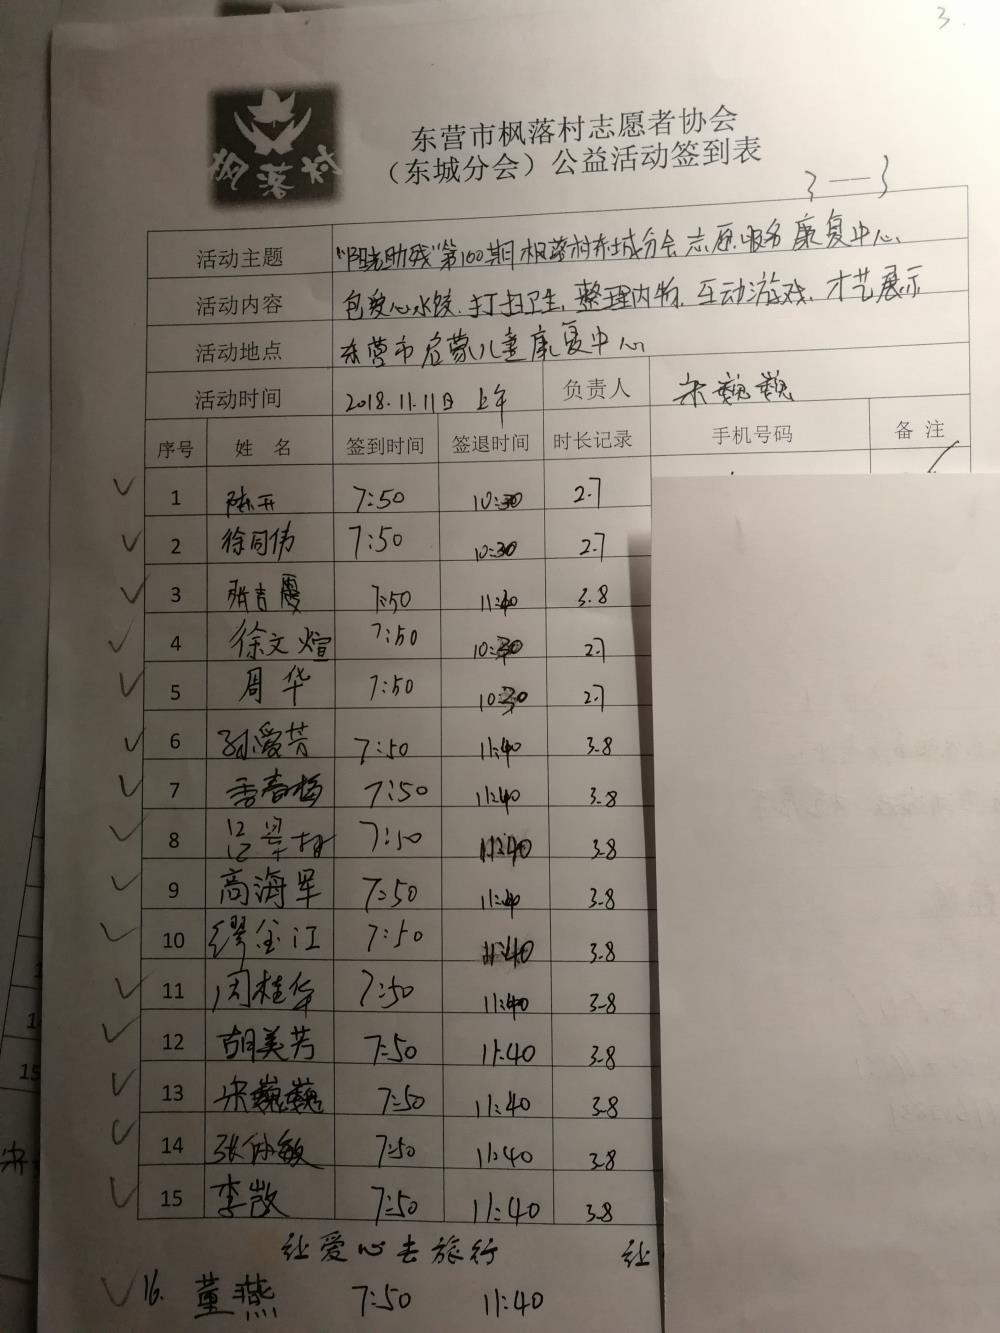 3.
枫落村
东营市枫落村志愿者协会
（东城分会）公益活动签到表
3—3
活动主题 "阳光助残"第100期枫落村东城分会志愿服务康复中心
活动内容 包爱心水饺.打扫卫生.整理内物.互动游戏.才艺展示
活动地点 东营市启蒙儿童康复中心
活动时间 2018.11.11日 上午 负责人 宋巍巍
序号 姓 名 签到时间 签退时间 时长记录 手机号码 备 注
1 陈开 7:50 10:30 2.7
2 徐同伟 7:50 10:30 2.7
3 张吉霞 7:50 11:40 3.8
4 徐文煊 7:50 10:30 2.7
5 周华 7:50 10:30 2.7
6 孙爱芳 7:50 11:40 3.8
7 季春梅 7:50 11:40 3.8
8 7:50 11:40 3.8
9 高海军 7:50 11:40 3.8
10 缪金江 7:50 11:40 3.8
11 闵桂华 7:50 11:40 3.8
12 胡美芳 7:50 11:40 3.8
13 宋巍巍 7:50 11:40 3.8
14 张仲敏 7:50 11:40 3.8
15 李敬 7:50 11:40 3.8
让爱心去旅行 让
16. 董燕 7:50 11:40